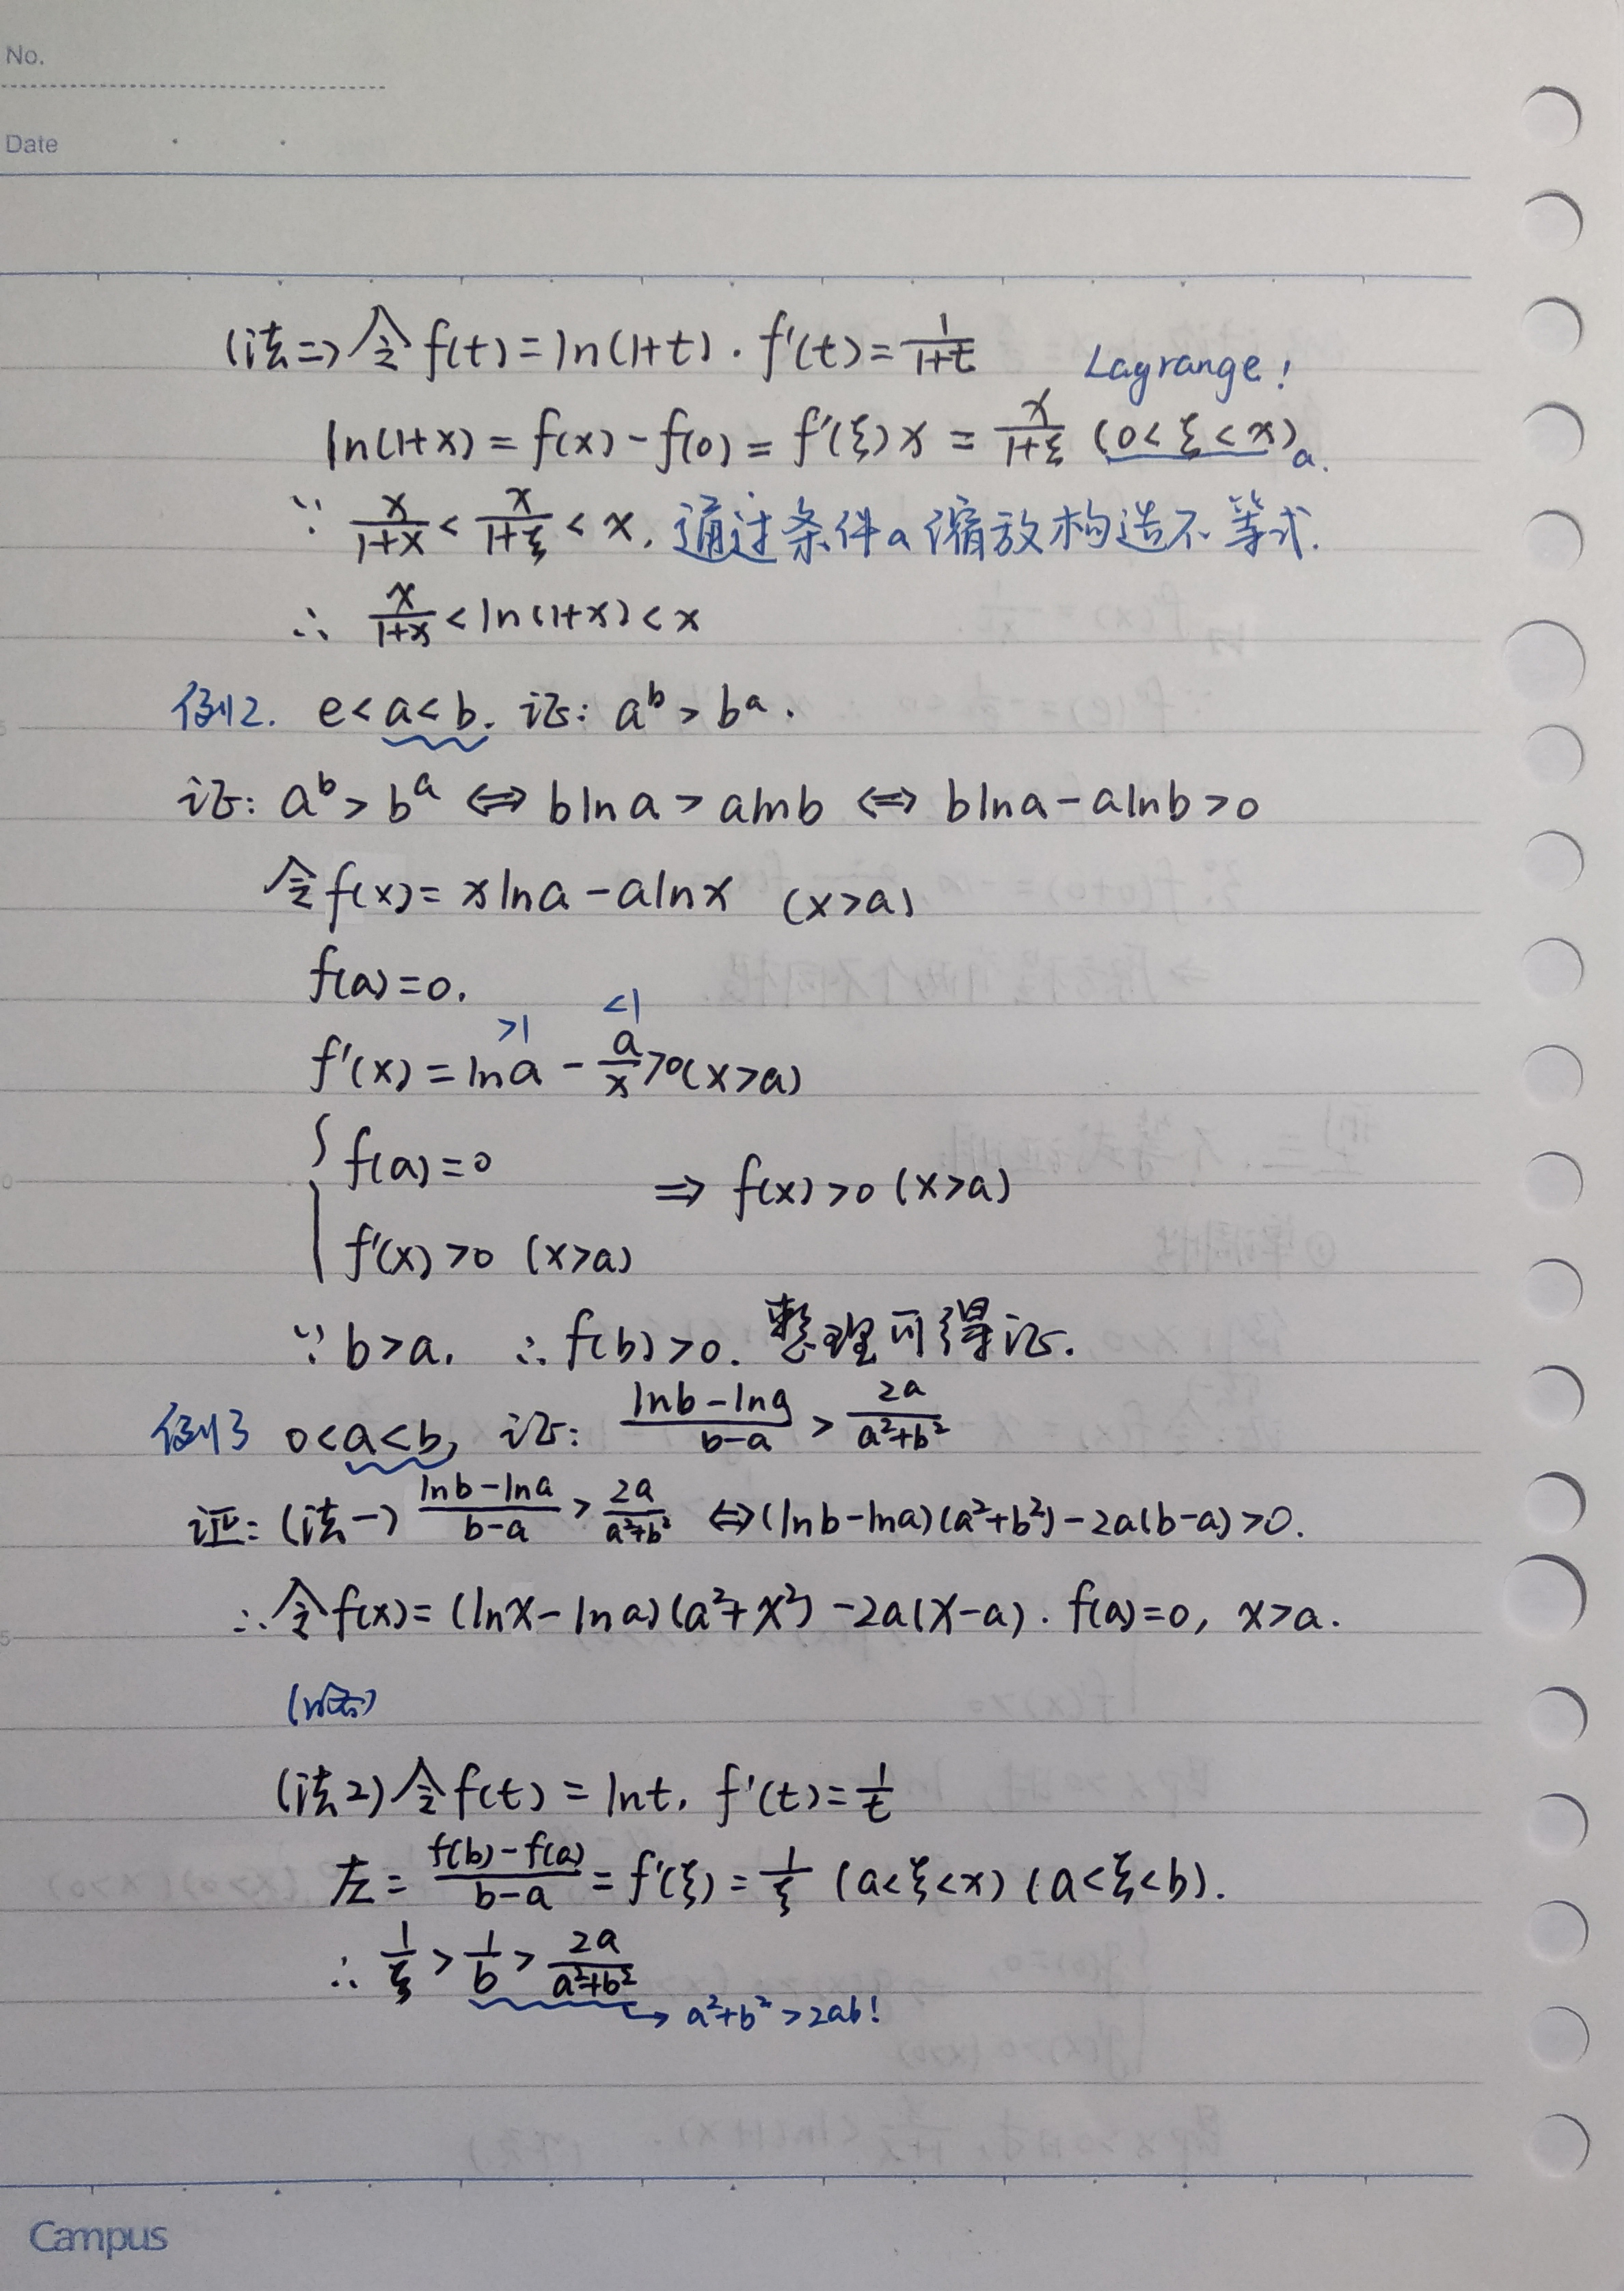 No.
Date
(法二) 令 f(t) = ln(1+t). f'(t) = 1/(1+t)
Lagrange!
ln(1+x) = f(x) - f(0) = f'(ξ)x = x/(1+ξ) (0<ξ<x)a.
∵ x/(1+x) < x/(1+ξ) < x. 通过条件a缩放构造不等式.
∴ x/(1+x) < ln(1+x) < x
例2. e<a<b. 证: a^b > b^a.
证: a^b > b^a ⇔ blna > alnb ⇔ blna - alnb > 0
令 f(x) = xlna - alnx (x>a)
f(a)=0.
>1 <1
f'(x) = lna - a/x >0 (x>a)
{ f(a)=0
⇒ f(x)>0 (x>a)
f'(x)>0 (x>a)
∵ b>a. ∴ f(b)>0. 整理可得证.
例3 0<a<b, 证: (lnb-lna)/(b-a) > 2a/(a²+b²)
证: (法一) (lnb-lna)/(b-a) > 2a/(a²+b²) ⇔ (lnb-lna)(a²+b²)-2a(b-a)>0.
∴ 令f(x) = (lnx-lna)(a²+x²)-2a(x-a). f(a)=0, x>a.
(法2) 令f(t) = lnt, f'(t) = 1/t
左 = (f(b)-f(a))/(b-a) = f'(ξ) = 1/ξ (a<ξ<x) (a<ξ<b).
∴ 1/ξ > 1/b > 2a/(a²+b²)
→ a²+b²>2ab!
Campus